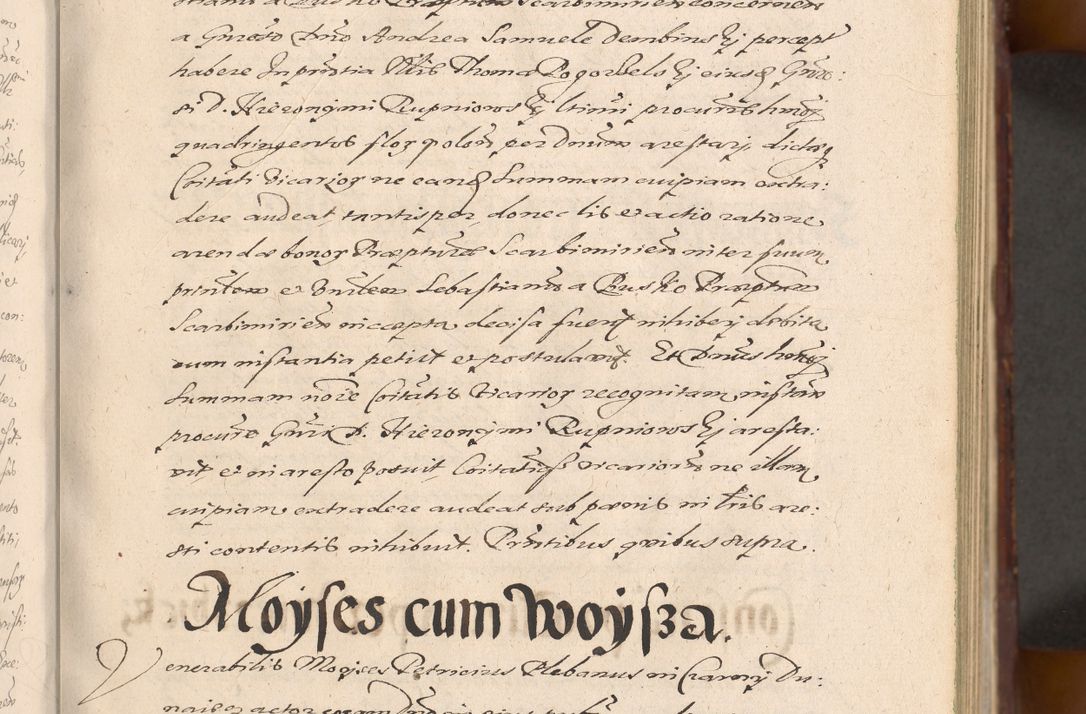 a Gnroso Dno Andrea Samuele Dembinski percept
habere In prntia Nlis Thoma Pogorzelski eiusq Gnro:
si D. Hieronymi Rupniowski ltimi procuris hmoj
quadringentos flor polon per Dnum arestarj, dictosq
Coitati Vicarior ne eand summam cuipiam extra:
dere audeat tantisper, donec lis et actio ratione
arendæ bonor Præpturæ Scarbimirien inter suum
prinlem et Vnrlem Sebastianum a Busko Præptum
Scarbimirien incæpta decisa fuerit inhiberj debita
cum instantia petiit et postulavit. Et Dnus hmoj
summam noie Coitatis Vicarior recognitam instan
procuris Gnrsi D. Hieronymi Rupniowski aresta:
vit et in aresto posuit, Coitatiq Vicariorum ne illam
cuipiam extradere audeat sub pænis in lris are:
sti contentis inhibuit. Prntibus quibus supra.
Moyses cum Woysza.
Venerabilis Moyses Petricius Plebanus in Czarny Du: